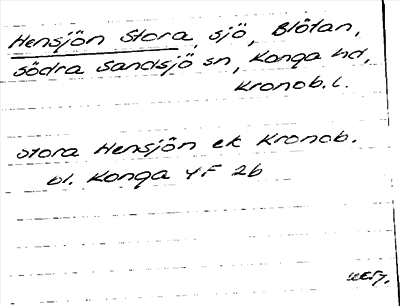 Hensjön Stora, sjö, Blötan,
Södra Sandsjö sn, Konga hd,
Kronob. l.
Stora Hensjön ek Kronob.
bl. Konga 4F 2b